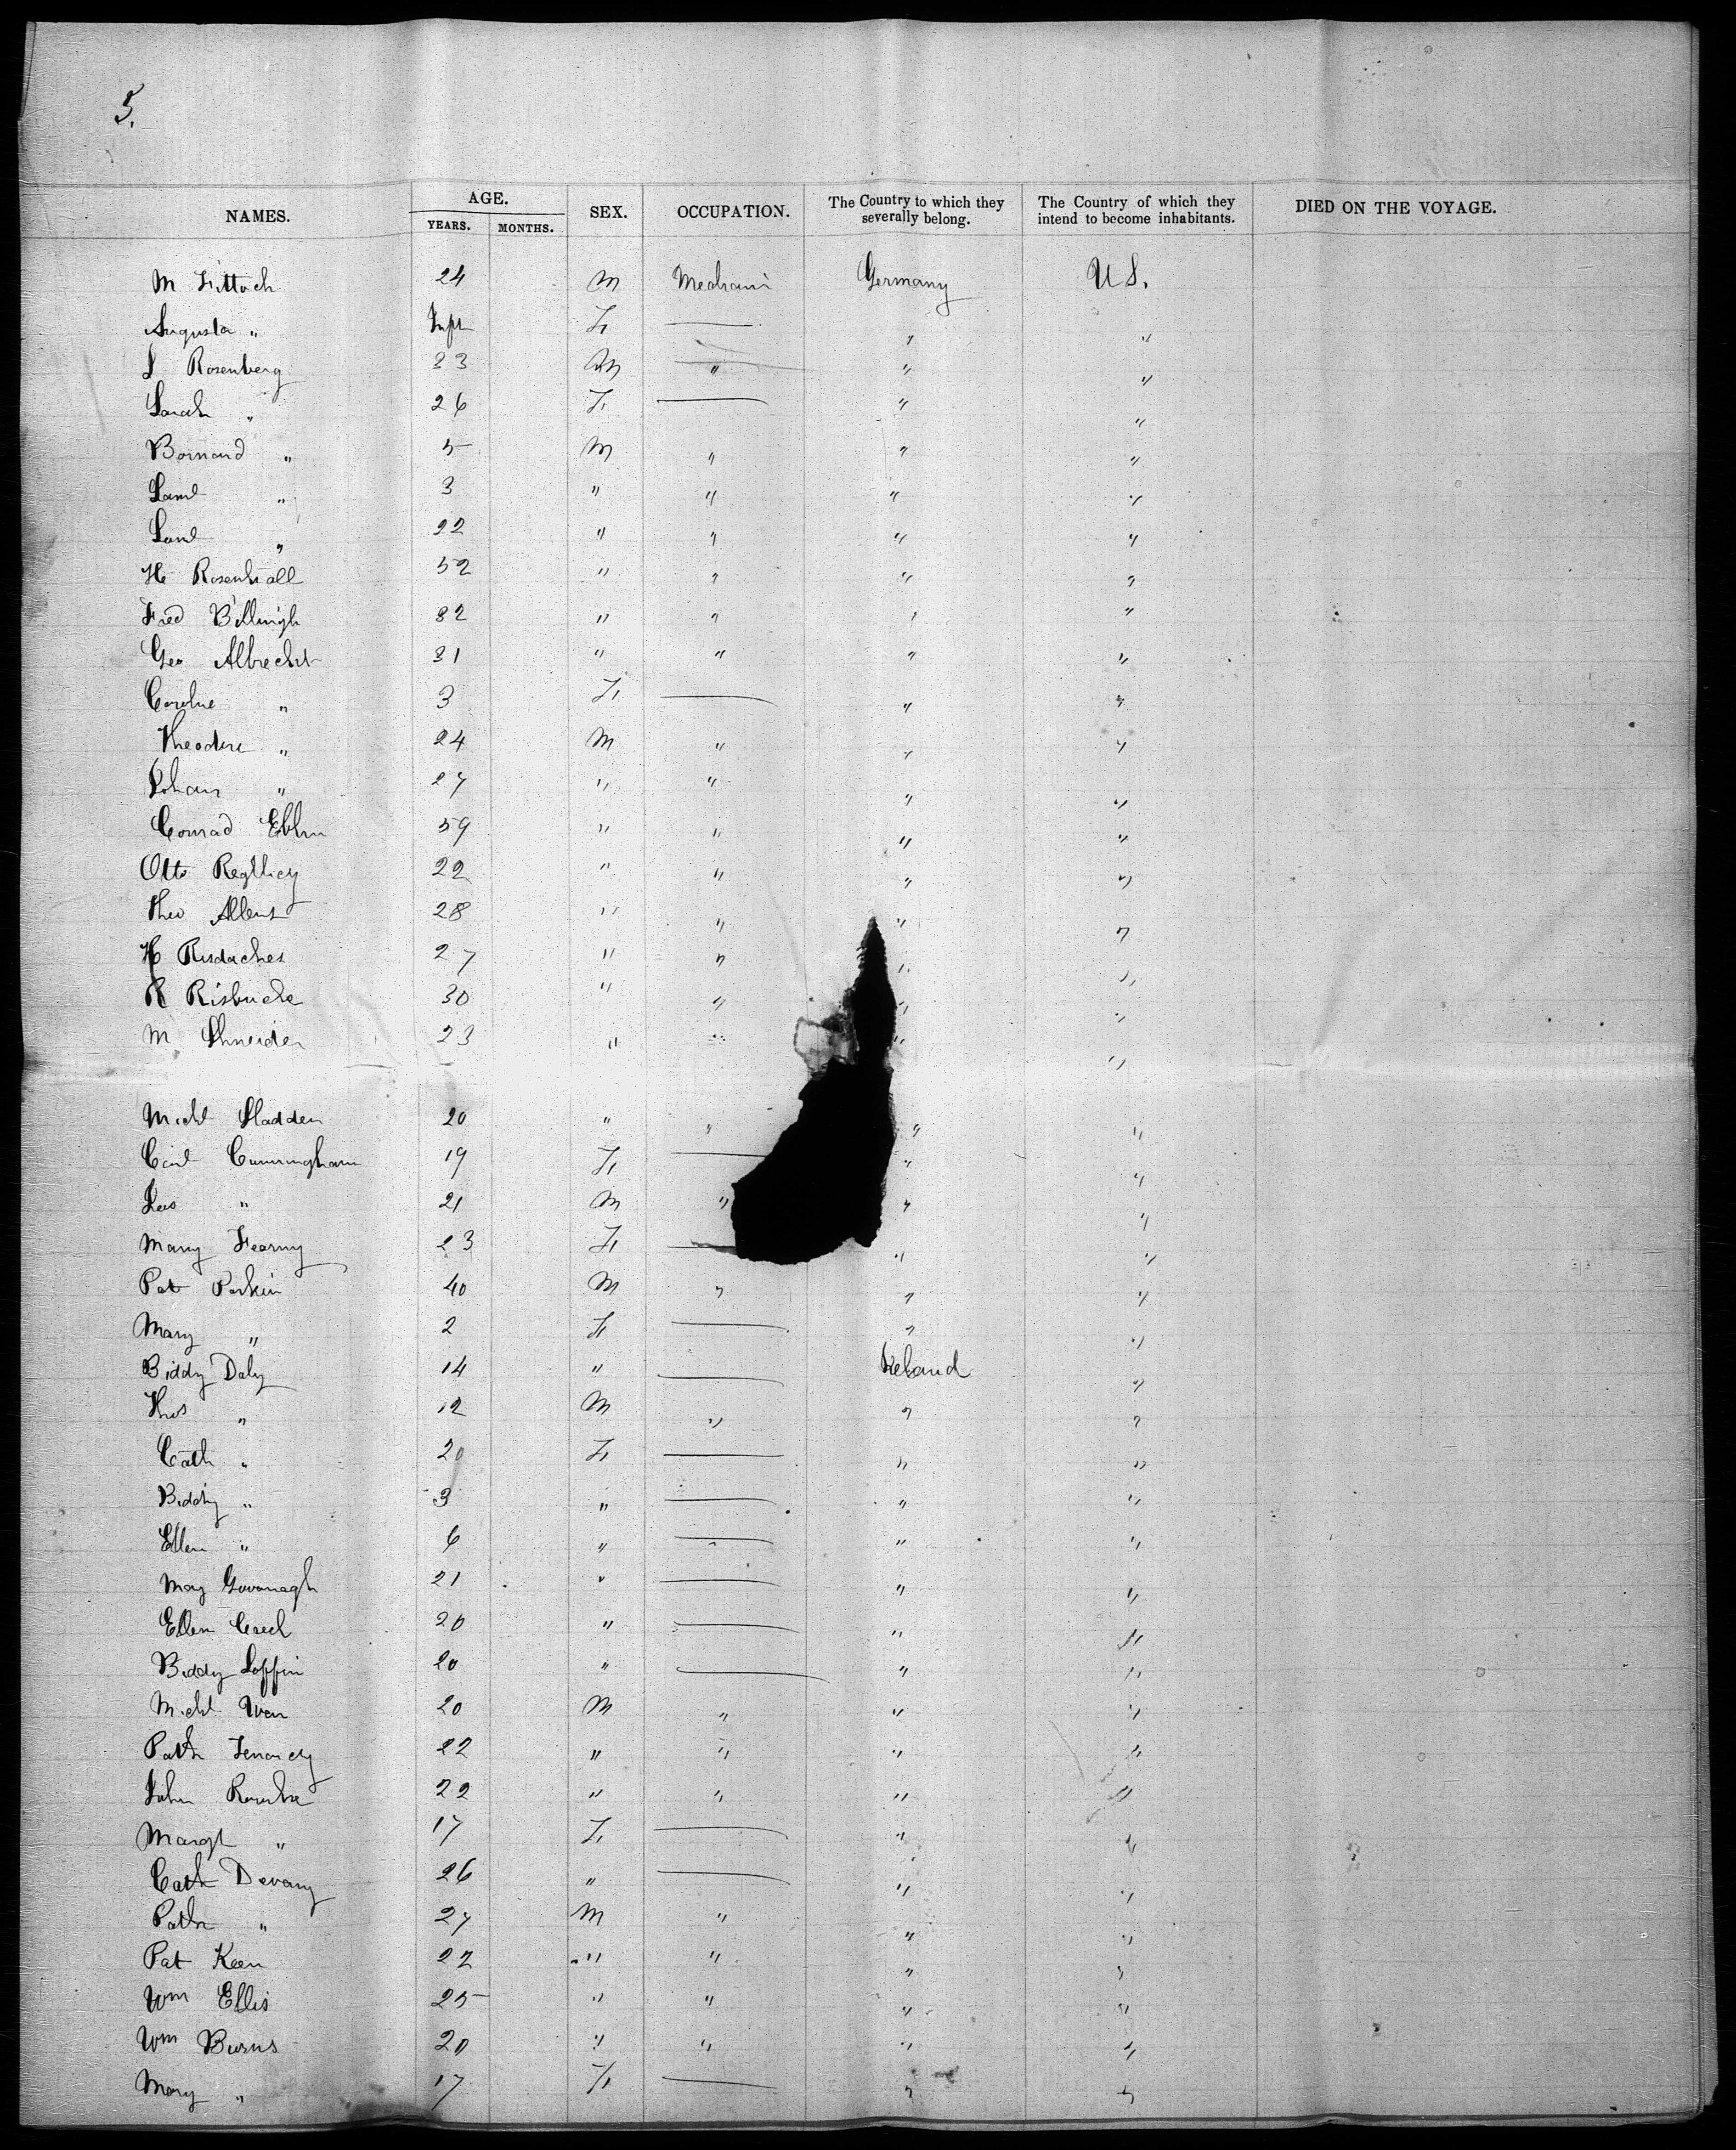 5.
NAMES. AGE. YEARS. MONTHS. SEX. OCCUPATION. The Country to which they severally belong. The Country of which they intend to become inhabitants. DIED ON THE VOYAGE.
M 24 M Germany U S.
Augusta " F " "
Rosenberg 33 M " " "
Sarah " 26 F " "
" 5 M " " "
Saml " 3 " " " "
Saml " 22 " " " "
52 " " " "
Fred 32 " " " "
Geo Albrecht 31 " " " "
Caroline " 3 F " "
Theodore " 24 M " " "
Johan " 27 " " " "
Conrad 59 " " " "
Otto 22 " " " "
Theo 28 " " " "
H 27 " " " "
R Risbuche 30 " " " "
M Shneider 23 " " " "
Michl Sladden 20 " " " "
Cunningham 19 F " "
" 21 M " " "
Mary Fearny 23 F " "
Pat 40 M " " "
Mary " 2 F " "
Biddy Daly 14 " Ireland "
Thos " 12 M " " "
Cath " 20 F " "
Biddy " 3 " " "
Ellen " 6 " " "
May Gavanagh 21 " " "
Ellen 20 " " "
Biddy 20 " " "
Michl 20 M " " "
22 " " " "
John Rourke 22 " " " "
Margt " 17 F " "
Cath Devany 26 " " "
" 27 M " " "
Pat Keen 22 " " " "
Wm Ellis 25 " " " "
Wm Burns 20 " " " "
Mary " 17 F " "